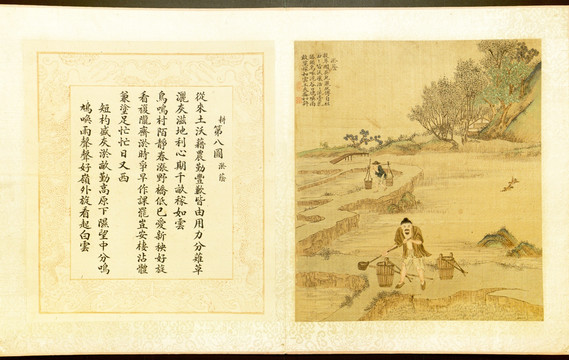 耕
第八圖 淤蔭
從來土沃藉農勤豐歉皆由用力分薙草
灑灰滋地利心期千畝稼如雲
鳥鳴村陌靜春漲野橋低已愛新秧好旋
看護隴齊淤時爭早作課罷豈安棲沾體
兼塗足忙忙日又西
短杓盛灰淤畝勤高原下隰望中分鳴
鳩喚雨聲聲好嶺外旋看起白雲
淤蔭